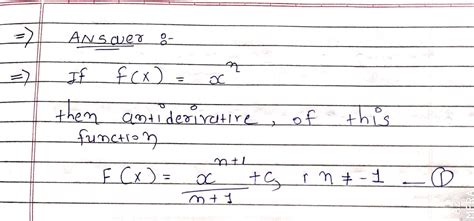 => Answer :-
=> If f(x) = x^n
then antiderivative, of this
function
F(x) = x^(n+1)/(n+1) + C, n ≠ -1 — ①